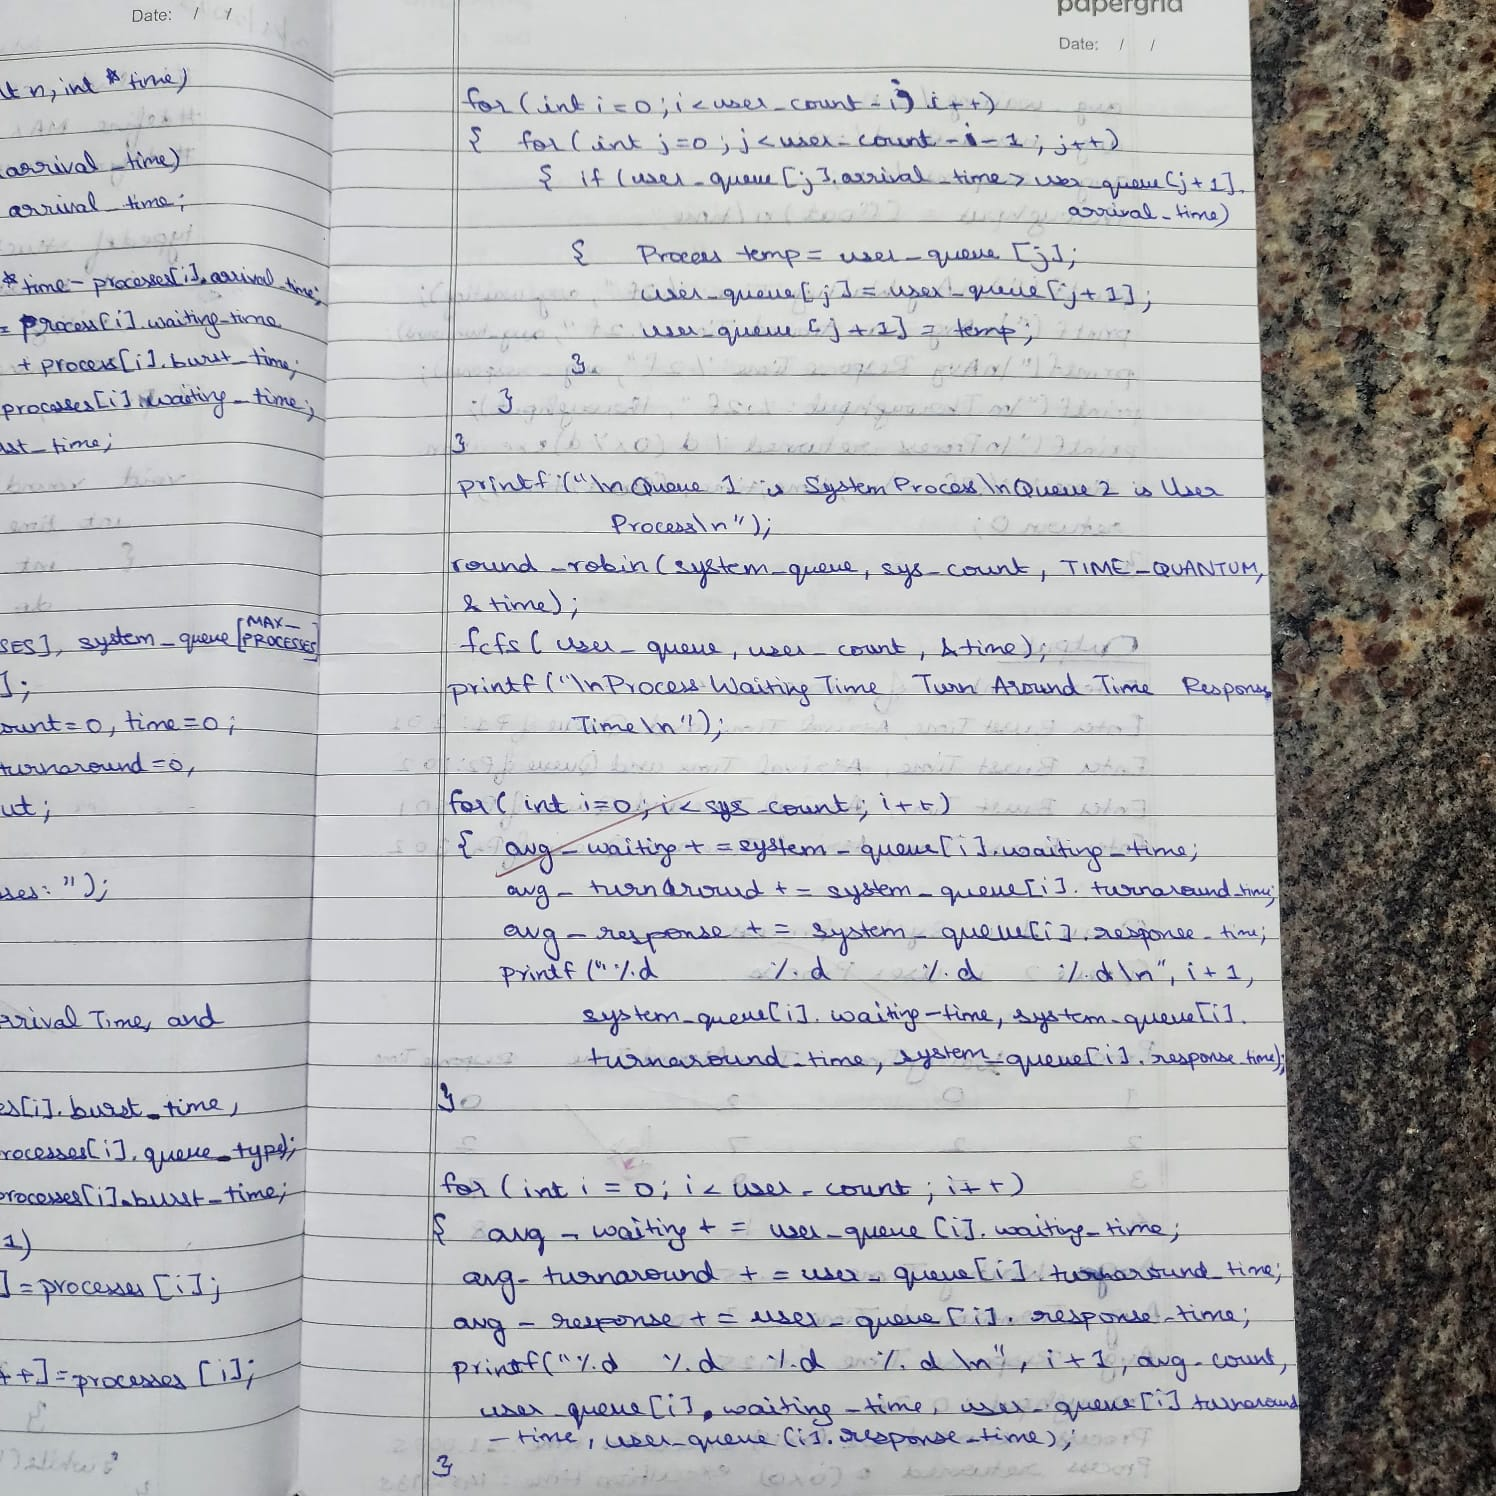 Date: / /
t n, int * time)
arrival_time)
arrival_time;
*time - processes[i].arrival_time;
= process[i].waiting_time
+ process[i].burst_time;
processes[i].waiting_time;
st_time;
SES], system_queue[MAX_PROCESSES]
];
ount=0, time=0;
turnaround=0,
ut;
ses: ");
rrival Time, and
es[i].burst_time,
rocesses[i].queue_type);
processes[i].burst_time;
1)
] = processes [i];
++] = processes [i];
papergrid
Date: / /
for (int i = 0; i < user_count - i; i++)
{ for (int j=0; j < user_count - i - 1; j++)
{ if (user_queue[j].arrival_time > user_queue[j+1].
arrival_time)
{ Process temp = user_queue [j];
user_queue[j] = user_queue[j+1];
user_queue[j+1] = temp;
}
}
}
printf("\nQueue 1 is System Process\nQueue 2 is User
Process\n");
round_robin(system_queue, sys_count, TIME_QUANTUM,
&time);
fcfs( user_queue, user_count, &time);
printf("\nProcess Waiting Time Turn Around Time Response
Time\n");
for( int i=0; i < sys_count; i++)
{ avg_waiting += system_queue[i].waiting_time;
avg_turnaround += system_queue[i].turnaround_time;
avg_response += system_queue[i].response_time;
printf ("%d %d %d %d\n", i+1,
system_queue[i].waiting_time, system_queue[i].
turnaround_time, system_queue[i].response_time);
}
for (int i = 0; i < user_count; i++)
{ avg_waiting += user_queue[i].waiting_time;
avg_turnaround += user_queue[i].turnaround_time;
avg_response += user_queue[i].response_time;
printf("%d %d %d %d \n", i+1, avg_count,
user_queue[i].waiting_time, user_queue[i].turnaround
_time, user_queue[i].response_time);
}